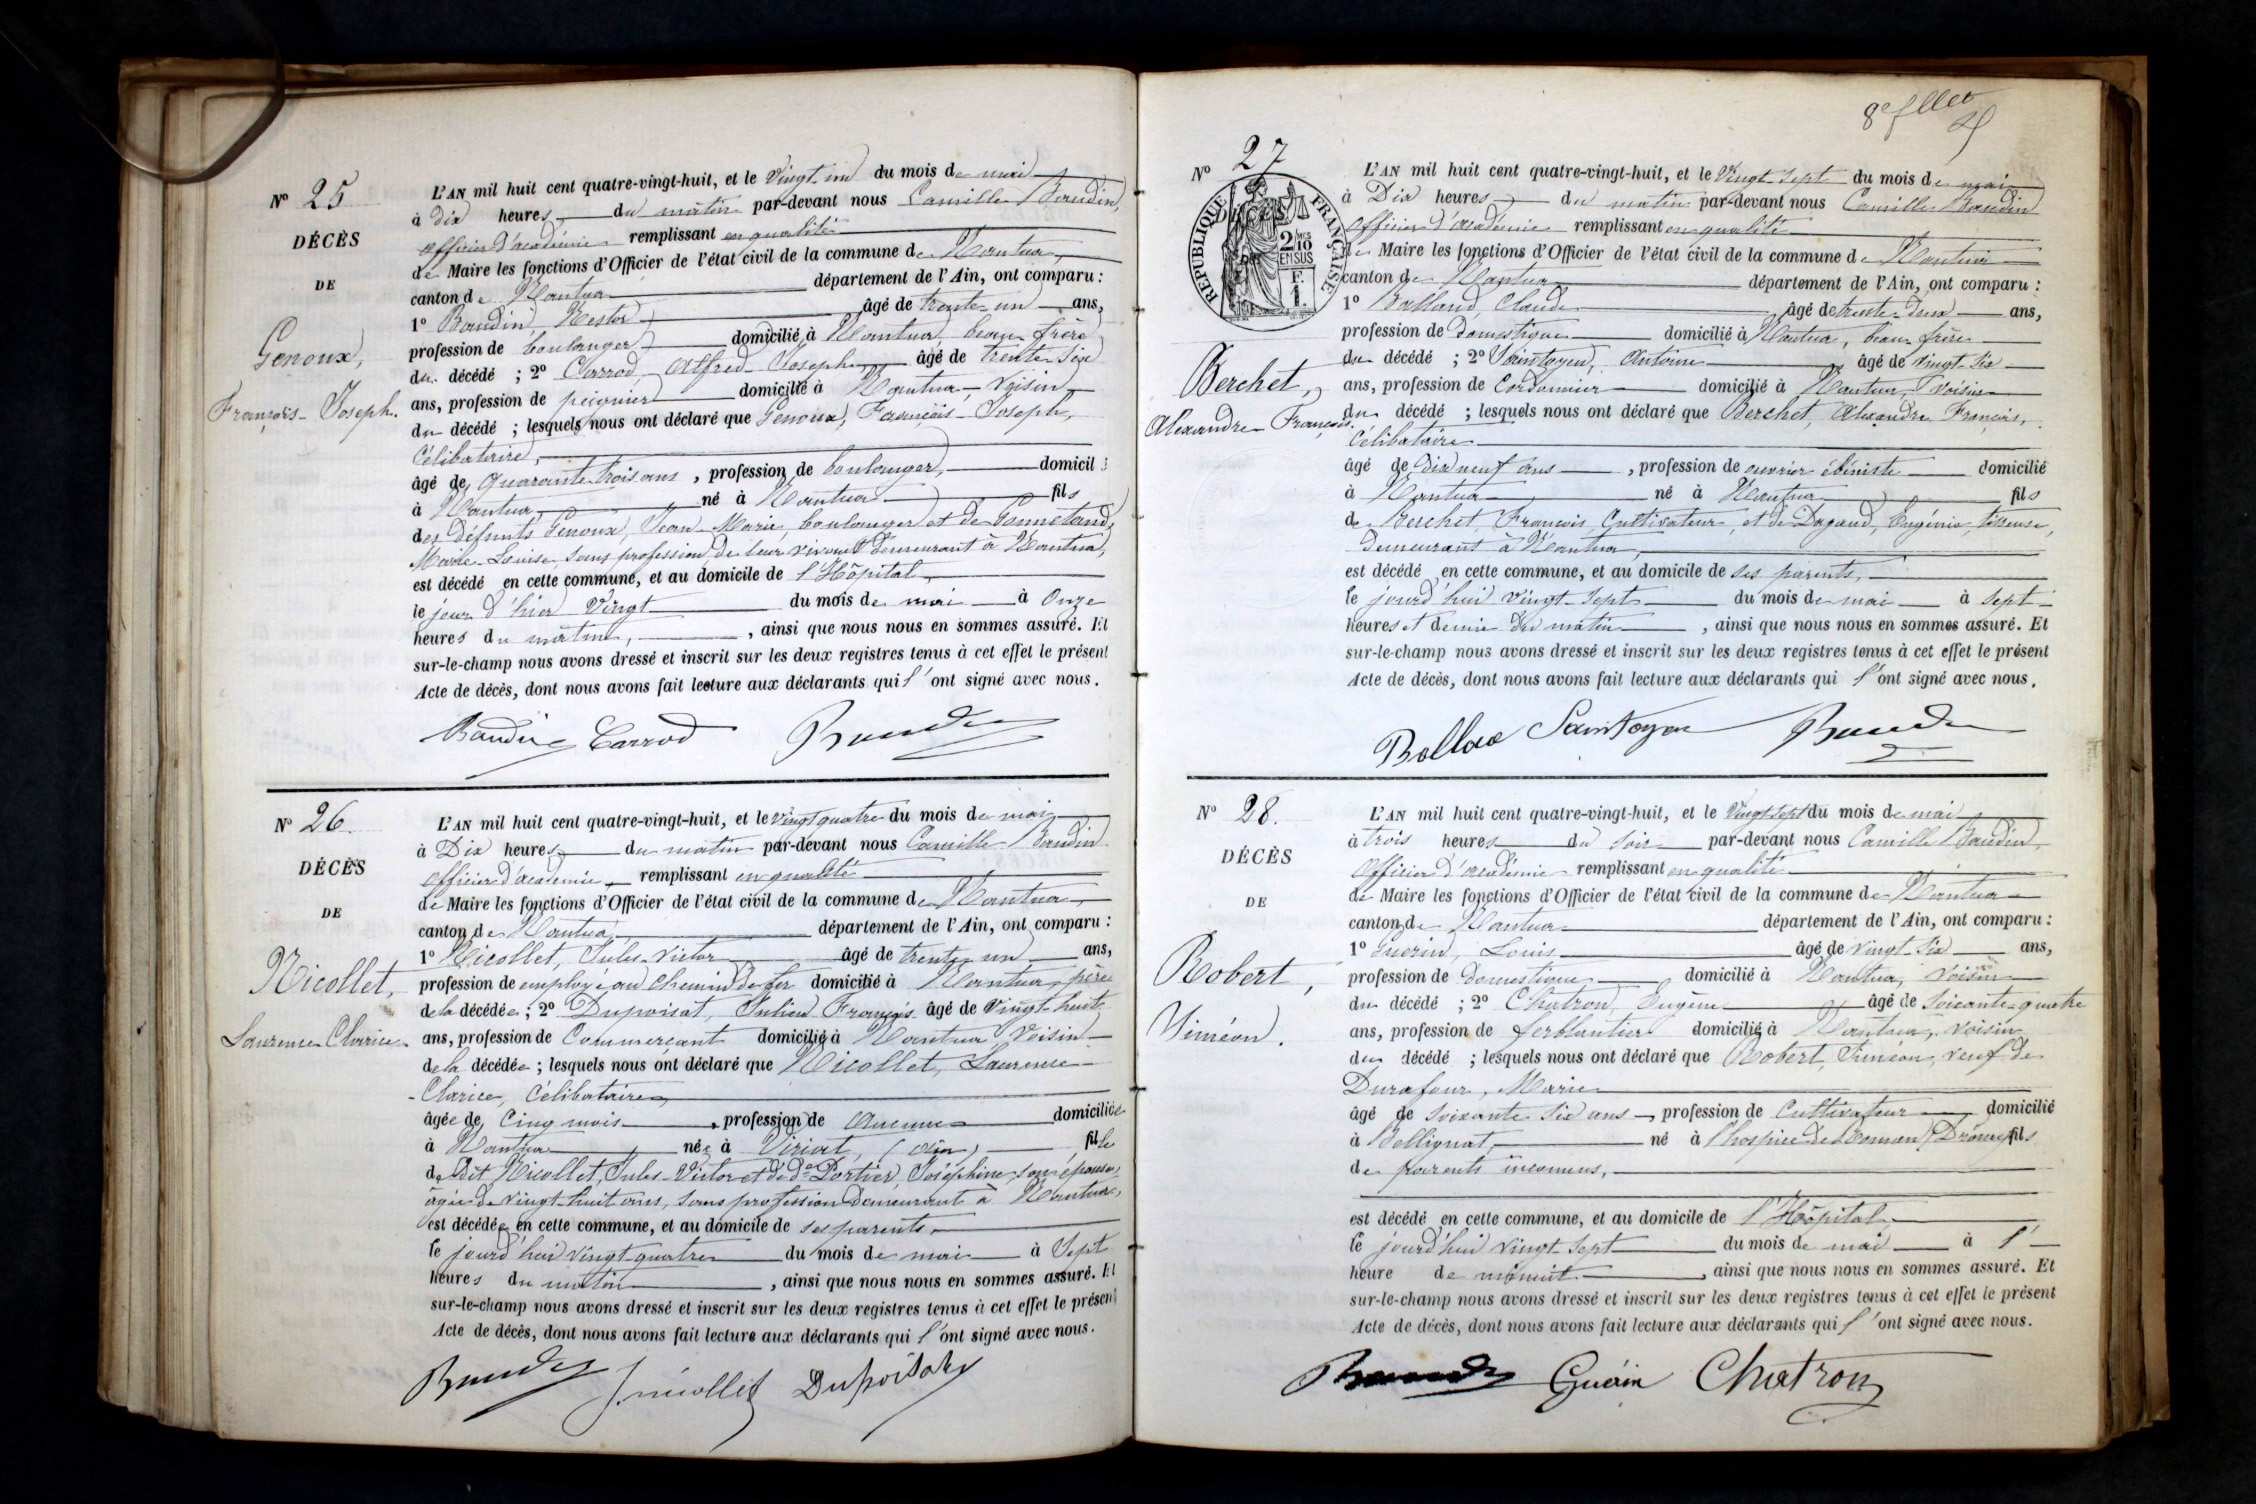 Nº 25
DÉCÈS
DE
Genoux,
François-Joseph.
L'AN mil huit cent quatre-vingt-huit, et le Vingt un du mois de mai
à dix heures du matin par-devant nous Camille Baudin,
officier d'académie remplissant en qualité
de Maire les fonctions d'Officier de l'état civil de la commune de Nantua,
canton de Nantua département de l'Ain, ont comparu :
1º Baudin, Nestor âgé de trente-un ans,
profession de boulanger domicilié à Nantua, beau-frère
du décédé ; 2º Carrod Alfred Joseph âgé de trente six
ans, profession de domicilié à Nantua, voisin
du décédé ; lesquels nous ont déclaré que Genoux, François-Joseph,
célibataire,
âgé de quarante trois ans, profession de boulanger, domicilié
à Nantua né à Nantua fils
des défunts Genoux, Jean-Marie, boulanger et de
Marie-Louise, sans profession, de leur vivant demeurant à Nantua,
est décédé en cette commune, et au domicile de l'Hôpital
le jour d'hier Vingt du mois de mai à Onze
heures du matin, , ainsi que nous nous en sommes assuré. Et
sur-le-champ nous avons dressé et inscrit sur les deux registres tenus à cet effet le présent
Acte de décès, dont nous avons fait lecture aux déclarants qui l'ont signé avec nous.
Baudin Carrod Baudin
Nº 26
DÉCÈS
DE
Nicollet,
Laurence-Clarice
L'AN mil huit cent quatre-vingt-huit, et le vingt quatre du mois de mai
à Dix heures du matin par-devant nous Camille Baudin
officier d'académie remplissant en qualité
de Maire les fonctions d'Officier de l'état civil de la commune de Nantua,
canton de Nantua, département de l'Ain, ont comparu :
1º Nicollet, Jules-Victor âgé de trente-un ans,
profession de employé au chemin de fer domicilié à Nantua, père
de la décédée ; 2º Dupoisat, Julien François âgé de Vingt-huit
ans, profession de Commerçant domicilié à Nantua Voisin
de la décédée ; lesquels nous ont déclaré que Nicollet, Laurence-
-Clarice, célibataire,
âgée de Cinq mois, profession de Aucune domiciliée
à Nantua née à Viriat, (Ain) fille
de dit Nicollet, Jules-Victor et de de Portier, Joséphine, son épouse,
âgée de vingt-huit ans, sans profession demeurant à Nantua,
est décédée en cette commune, et au domicile de ses parents
le jourd'hui vingt quatre du mois de mai à Sept
heures du matin, ainsi que nous nous en sommes assuré. Et
sur-le-champ nous avons dressé et inscrit sur les deux registres tenus à cet effet le présent
Acte de décès, dont nous avons fait lecture aux déclarants qui l'ont signé avec nous.
Baudin J. nicollet Dupoisat
8e fllet
Nº 27
DÉCÈS
RÉPUBLIQUE FRANÇAISE
2/10 EN SUS
F. 1.
Berchet,
Alexandre François.
L'AN mil huit cent quatre-vingt-huit, et le Vingt-sept du mois de mai
à Dix heures du matin par-devant nous Camille Baudin
officier d'académie remplissant en qualité
de Maire les fonctions d'Officier de l'état civil de la commune de Nantua
canton de Nantua département de l'Ain, ont comparu :
1º Balland, Claude âgé de trente-deux ans,
profession de domestique domicilié à Nantua, beau frère
du décédé ; 2º Saintoyen, Antoine âgé de vingt six
ans, profession de Cordonnier domicilié à Nantua, Voisin
du décédé ; lesquels nous ont déclaré que Berchet, Alexandre François,
Célibataire
âgé de Dix neuf ans, profession de ouvrier ébéniste domicilié
à Nantua né à Nantua fils
de Berchet, François Cultivateur, et de Dagand, Eugénie, tisseuse,
demeurant à Nantua,
est décédé en cette commune, et au domicile de ses parents,
le jourd'hui vingt-sept du mois de mai à sept
heures et demie du matin, ainsi que nous nous en sommes assuré. Et
sur-le-champ nous avons dressé et inscrit sur les deux registres tenus à cet effet le présent
Acte de décès, dont nous avons fait lecture aux déclarants qui l'ont signé avec nous.
Saintoyen Baudin
Nº 28.
DÉCÈS
DE
Robert,
Siméon.
L'AN mil huit cent quatre-vingt-huit, et le Vingt sept du mois de mai
à trois heures du soir par-devant nous Camille Baudin,
officier d'académie remplissant en qualité
de Maire les fonctions d'Officier de l'état civil de la commune de Nantua
canton de Nantua département de l'Ain, ont comparu :
1º Guérin, Louis âgé de vingt six ans,
profession de Domestique domicilié à Nantua, voisin
du décédé ; 2º Chatron, Eugène âgé de soixante-quatre
ans, profession de ferblantier domicilié à Nantua, voisin
du décédé ; lesquels nous ont déclaré que Robert, Siméon, veuf de
Durafour, Marie
âgé de soixante six ans, profession de Cultivateur domicilié
à Bellignat né à l'hospice de Romans (Drôme) fils
de parents inconnus,
est décédé en cette commune, et au domicile de l'Hôpital,
le jourd'hui vingt-sept du mois de mai à l'
heure de minuit, ainsi que nous nous en sommes assuré. Et
sur-le-champ nous avons dressé et inscrit sur les deux registres tenus à cet effet le présent
Acte de décès, dont nous avons fait lecture aux déclarants qui l'ont signé avec nous.
Baudin Guérin Chatron